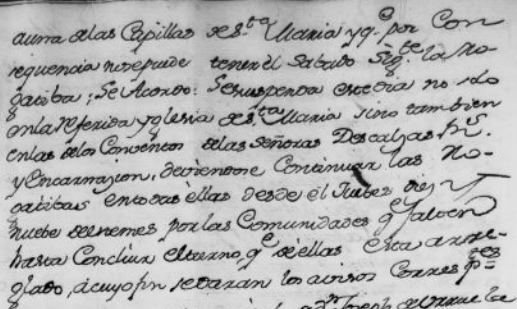 auna de las Capillas de S.ta Maria y q.e por Con
sequencia no se puede tener el Sabado Sig.te la Ro-
gatiba; Se Acordo: Se suspenda este dia no solo
en la referida yglesia de S.ta Maria sino tambien
en las de los Conventos de las Señoras Descalzas R.s.
y Encarnazion, deviendose Continuar las Ro-
gatibas en todas ellas desde el Jueves diez y
nuebe de el mes por las Comunidades q.e falten
hasta Concluir el turno, q.e de ellas esta arre-
glado, a cuyo fin se daran los avisos Corresp.tes